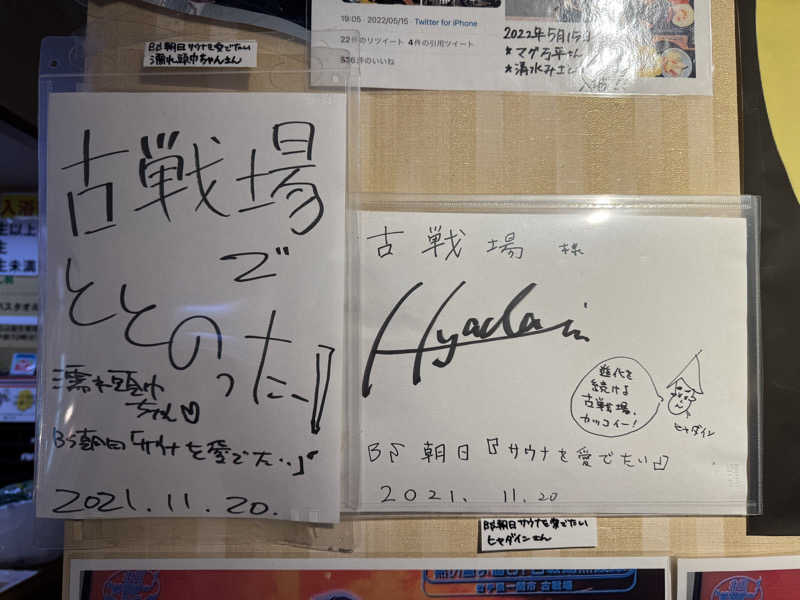 19:05 · 2022/05/15 · Twitter for iPhone
22件のリツイート 4件の引用ツイート
536件のいいね
2022年5月15日
★マグ万平さん
★清水みさとさん
入浴
BS朝日サウナを愛でたい
濡れ頭巾ちゃんさん
古戦場
で
ととのった…!!
濡れ頭巾
ちゃん♡
BS朝日「サウナを愛でたい」
2021.11.20.
古戦場 様
Hyadain
進化を
続ける
古戦場、
カッコイー!
ヒャダイン
BS 朝日『サウナを愛でたい』
2021. 11.20
BS朝日サウナを愛でたい
ヒャダインさん
入浴
以上
未満
バスタオル
岩手県一関市 古戦場